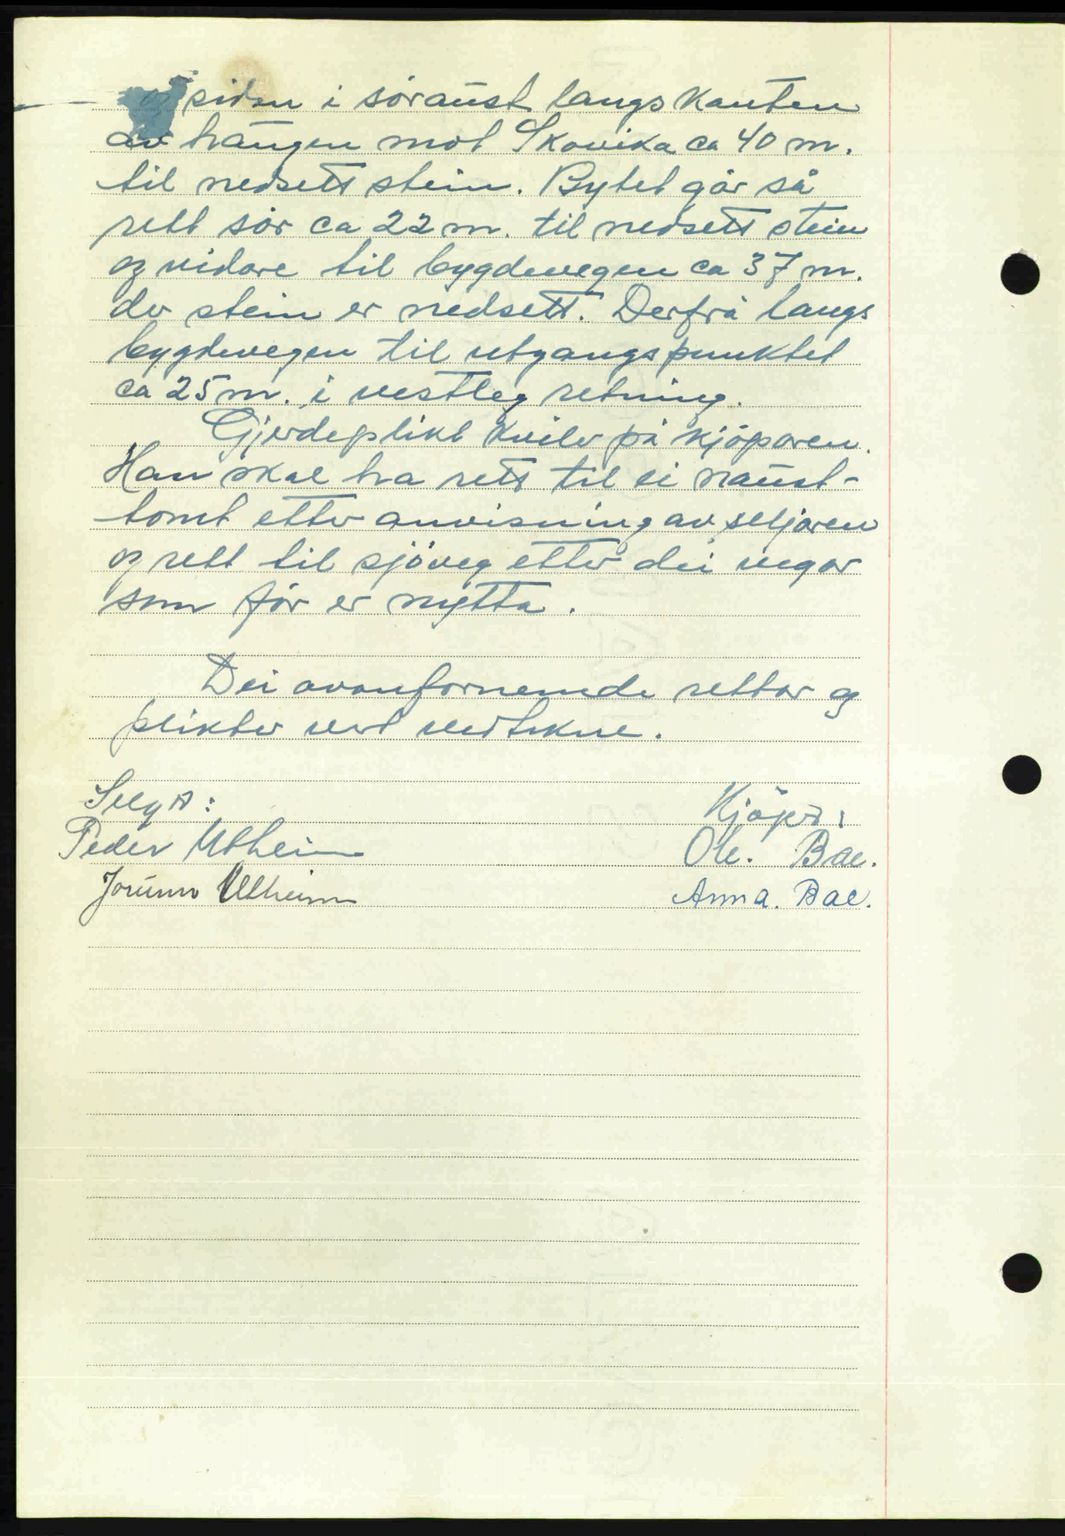 og sidan i søraust langs kanten
av haugen mot Skovika ca 40 m.
til nedsett stein. Bytet går så
rett sør ca 22 m. til nedsett stein
og vidare til bygdevegen ca 37 m.
der stein er nedsett. Derfrå langs
bygdevegen til utgangspunktet
ca 25 m. i vestleg retning.
Gjerdeplikt kviler på kjöparen.
Han skal ha rett til ei naust-
tomt etter anvisning av seljaren
og rett til sjöveg etter dei vegar
som för er nytta.
Dei ovanfornemde rettar og
plikter vert vedtekne.
Selgar:
Kjöper:
Peder Utheim
Ole. Bae.
Jorunn Utheim
Anna. Bae.